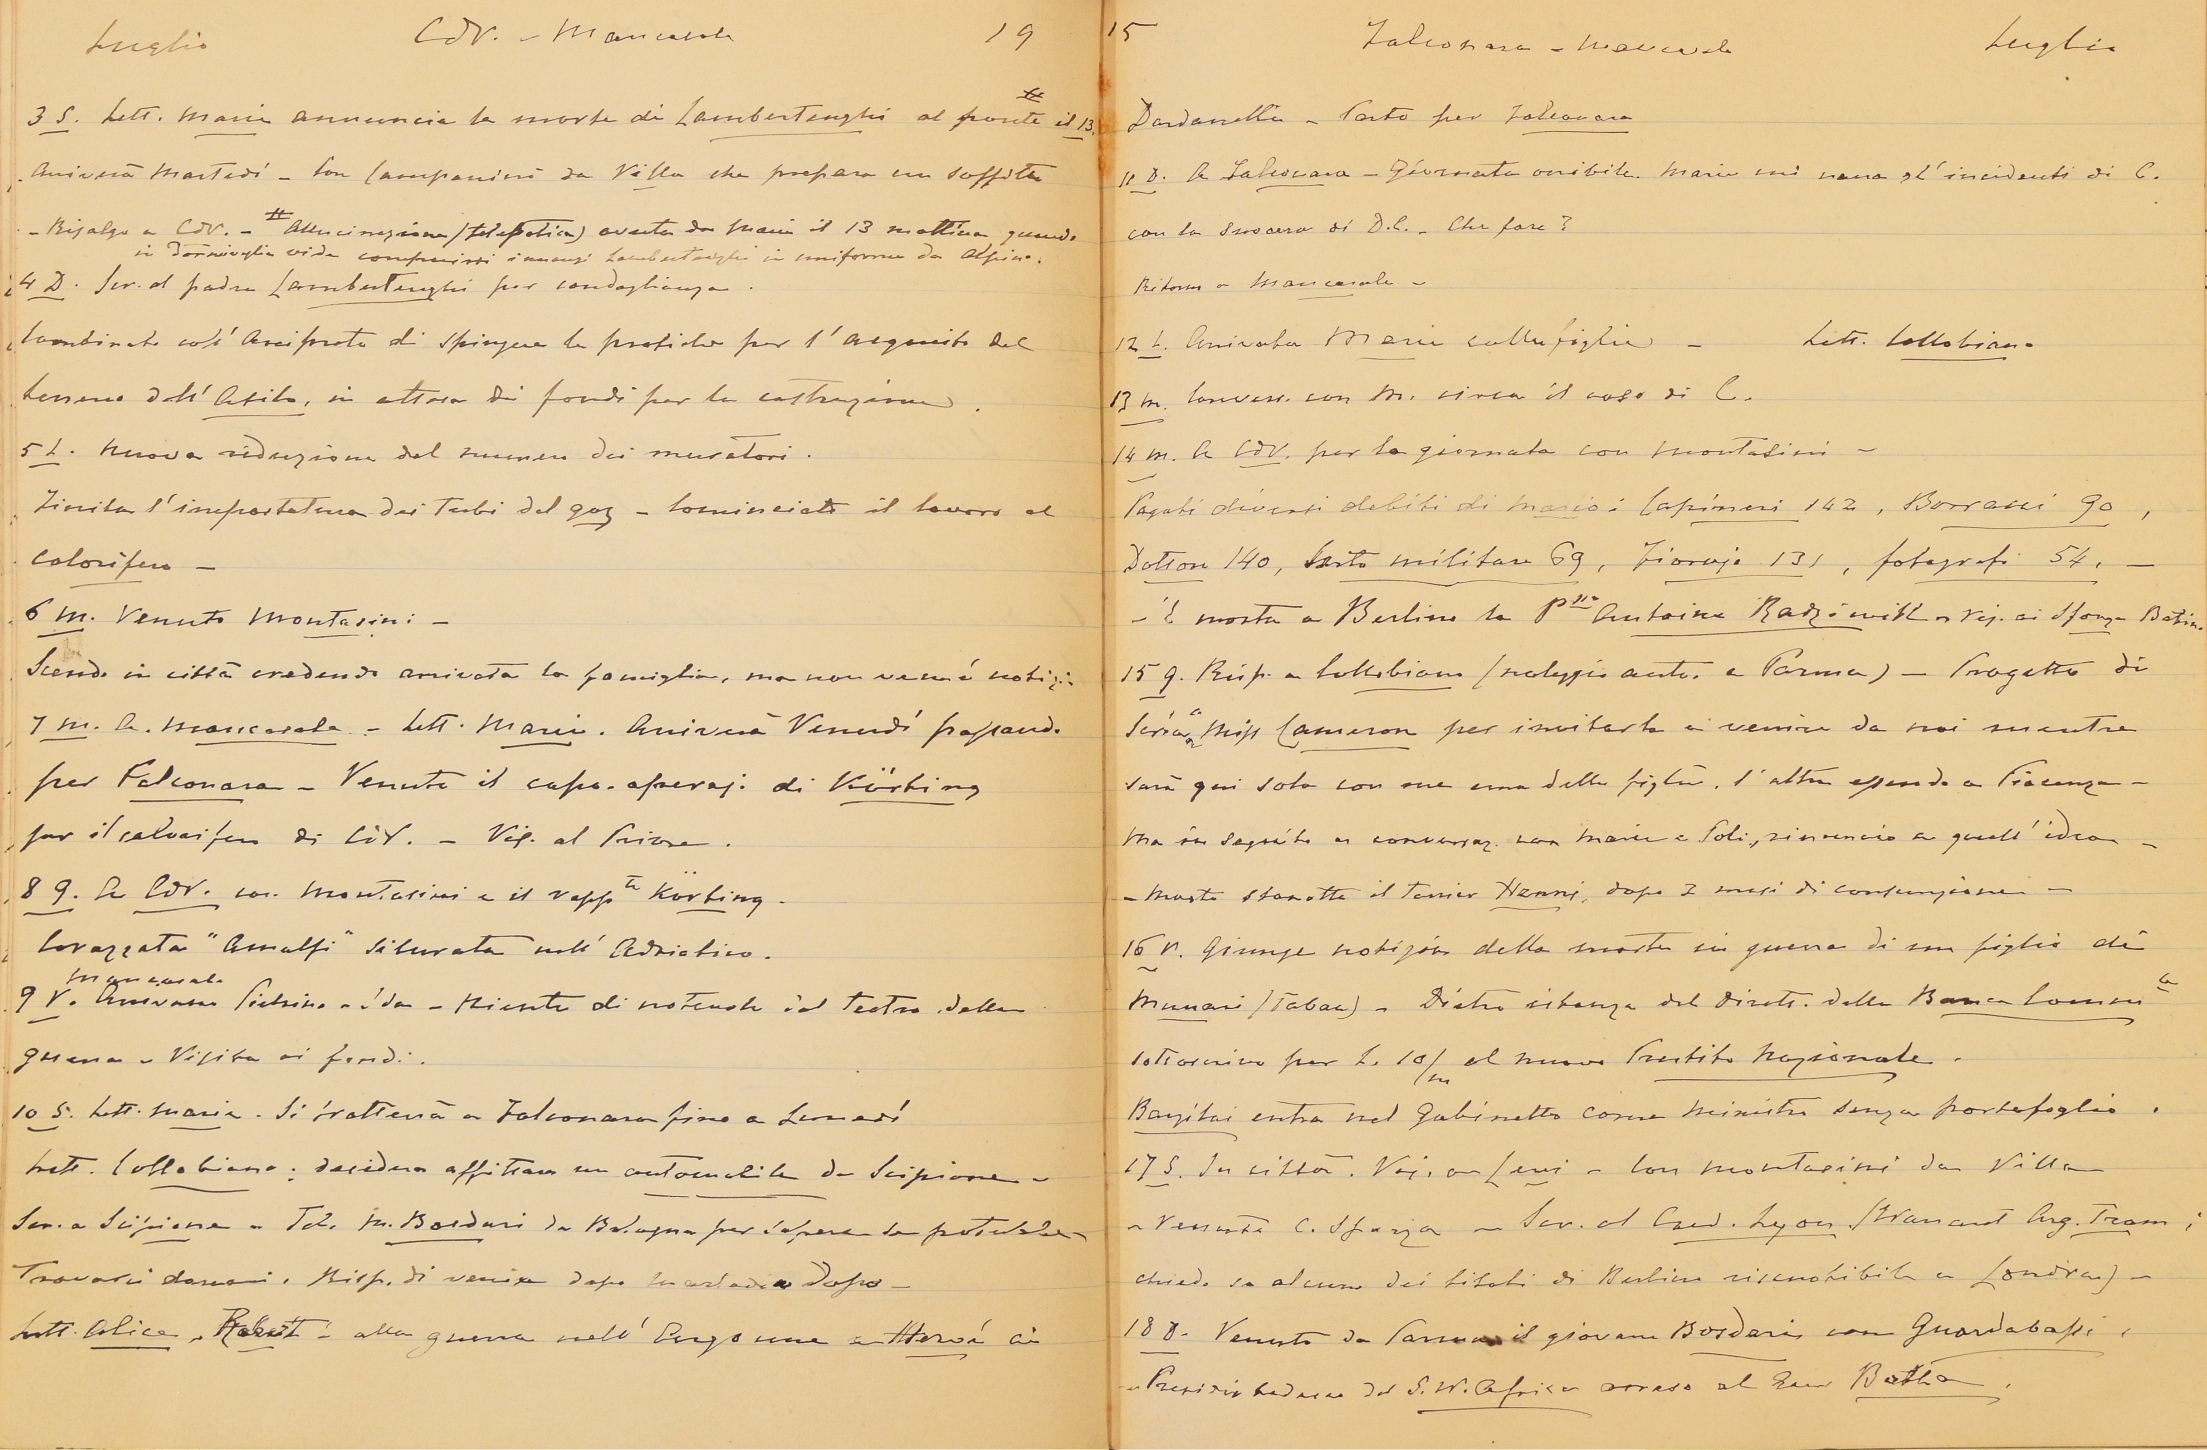 Luglio CdV. - Mancasale 19
3 S. Lett. Maria annuncia la morte di Lambertenghi al fronte # il 13.
Arriverà Martedì - Con Campanini da Villa che prepara un soffitto
- Risalgo a CdV. - # Allucinazione (telepatica) avuta da Maria il 13 mattina quando
in dormiveglia vide comparirsi innanzi Lambertenghi in uniforme da Alpino.
4 D. Scr. al padre Lambertenghi per condoglianza.
Combinato coll' Arciprete di spingere le pratiche per l'acquisto del
terreno dell' Asilo, in attesa di fondi per la costruzione.
5 L. Nuova riduzione del numero dei muratori.
Finita l'impostatura dei tubi del gaz - Cominciato il lavoro al
calorifero -
6 M. Venuto Montasini -
Scendo in città credendo arrivata la famiglia, ma non vennè notizi
7 M. A Mancasale - Lett. Maria. Arriverà Venerdì passando
per Falconara - Venuto il capo-operaj. di Körting
per il calorifero di CdV. - Vis. al Priore.
8 G. A CdV. con Montasini e il rapp.te Körting.
Corazzata "Amalfi" silurata nell' Adriatico.
Mancasale
9 V. Arrivano Pietrino e Ida - Niente di notevole sul teatro della
guerra - Visita ai fondi.
10 S. Lett. Maria. Si tratterrà a Falconara fino a Lunedì
Lett. Collobiano: desidera affittare un automobile da Scipione -
Scr. a Scipione - Tel. M. Bosdari da Bologna per sapere se potrebbe
trovarci domani. Risp. di venire dopo Martedì o dopo -
Lett. Alice, Robert è alla guerra nell' Argonne e Hervé ai
15 Falconara - Mancasale Luglio
Dardanelli - Parto per Falconara
11 D. A Falconara - Giornata orribile. Maria mi narra gl' incidenti di C.
con la suocera di D.C. - Che fare?
Ritorno a Mancasale -
12 L. Arrivata Maria colle figlie - Lett. Collobiano
13 M. Convers. con M. circa il caso di C.
14 M. A CdV. per la giornata con Montasini -
Pagati diversi debiti di Mario: Capineri 142, Borrassi 90,
Dottore 140, Sarto militare 69, Fioraja 131, fotografi 54, -
- È morta a Berlino la P.ssa Antoine Radziwill - Vis. ai Sforza
15 G. Risp. a Collobiano (noleggio auto. a Parma) - Progetto di
scrivere a Miss Cameron per invitarla a venire da noi mentre
sarà qui sola con me una delle figlie, l'altra essendo a Piacenza -
Ma in seguito a conversaz. con Maria e Poli, rinuncio a quell' idea -
- Morto stanotte il terrier Henni, dopo 2 mesi di consunzione -
16 V. Giunge notizia della morte in guerra di un figlio di
Munari - Dietro istanza del Dirett. della Banca Comm.le
sottoscrivo per L. 10/m al nuovo Prestito Nazionale.
Barzilai entra nel Gabinetto come Ministro senza portafoglio.
17 S. In città. Vis. a Levi - Con Montasini da Villa
- Venuto C. Sforza - Scr. al Cred. Lyon. (Warrant Arg. Tram;
chiedo se alcuno dei titoli di Berlino riscuotibile a Londra) -
18 D. Venuto da Parma il giovane Bosdari con Guardabassi.
- Presidio tedesco del S.W. Africa arreso al Gen. Botha.